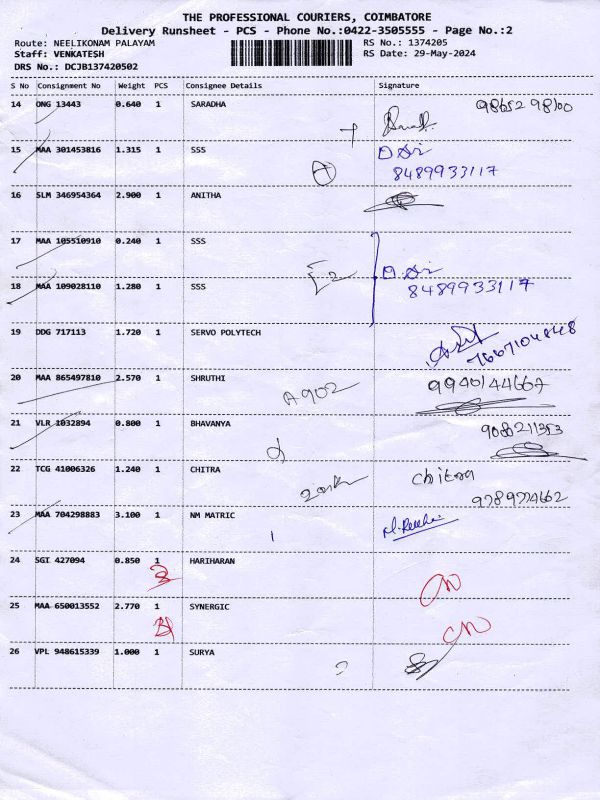 THE PROFESSIONAL COURIERS, COIMBATORE
Delivery Runsheet - PCS - Phone No.:0422-3505555 - Page No.:2
Route: NEELIKONAM PALAYAM RS No.: 1374205
Staff: VENKATESH RS Date: 29-May-2024
DRS No.: DCJB137420502
S No Consignment No Weight PCS Consignee Details Signature
14 ONG 13443 0.640 1 SARADHA 98652 98100
15 MAA 301453816 1.315 1 SSS
A 8489933117
16 SLM 346954364 2.900 1 ANITHA
17 MAA 105510910 0.240 1 SSS
18 MAA 109028110 1.280 1 SSS 8489933117
19 DDG 717113 1.720 1 SERVO POLYTECH
7667104848
20 MAA 865497810 2.570 1 SHRUTHI 9940144667
A902
21 VLR 1032894 0.800 1 BHAVANYA 9080211353
22 TCG 41006326 1.240 1 CHITRA Chitra
9789774662
23 MAA 704298883 3.100 1 NM MATRIC
24 SGI 427094 0.850 1 HARIHARAN
25 MAA 650013552 2.770 1 SYNERGIC
26 VPL 948615339 1.000 1 SURYA